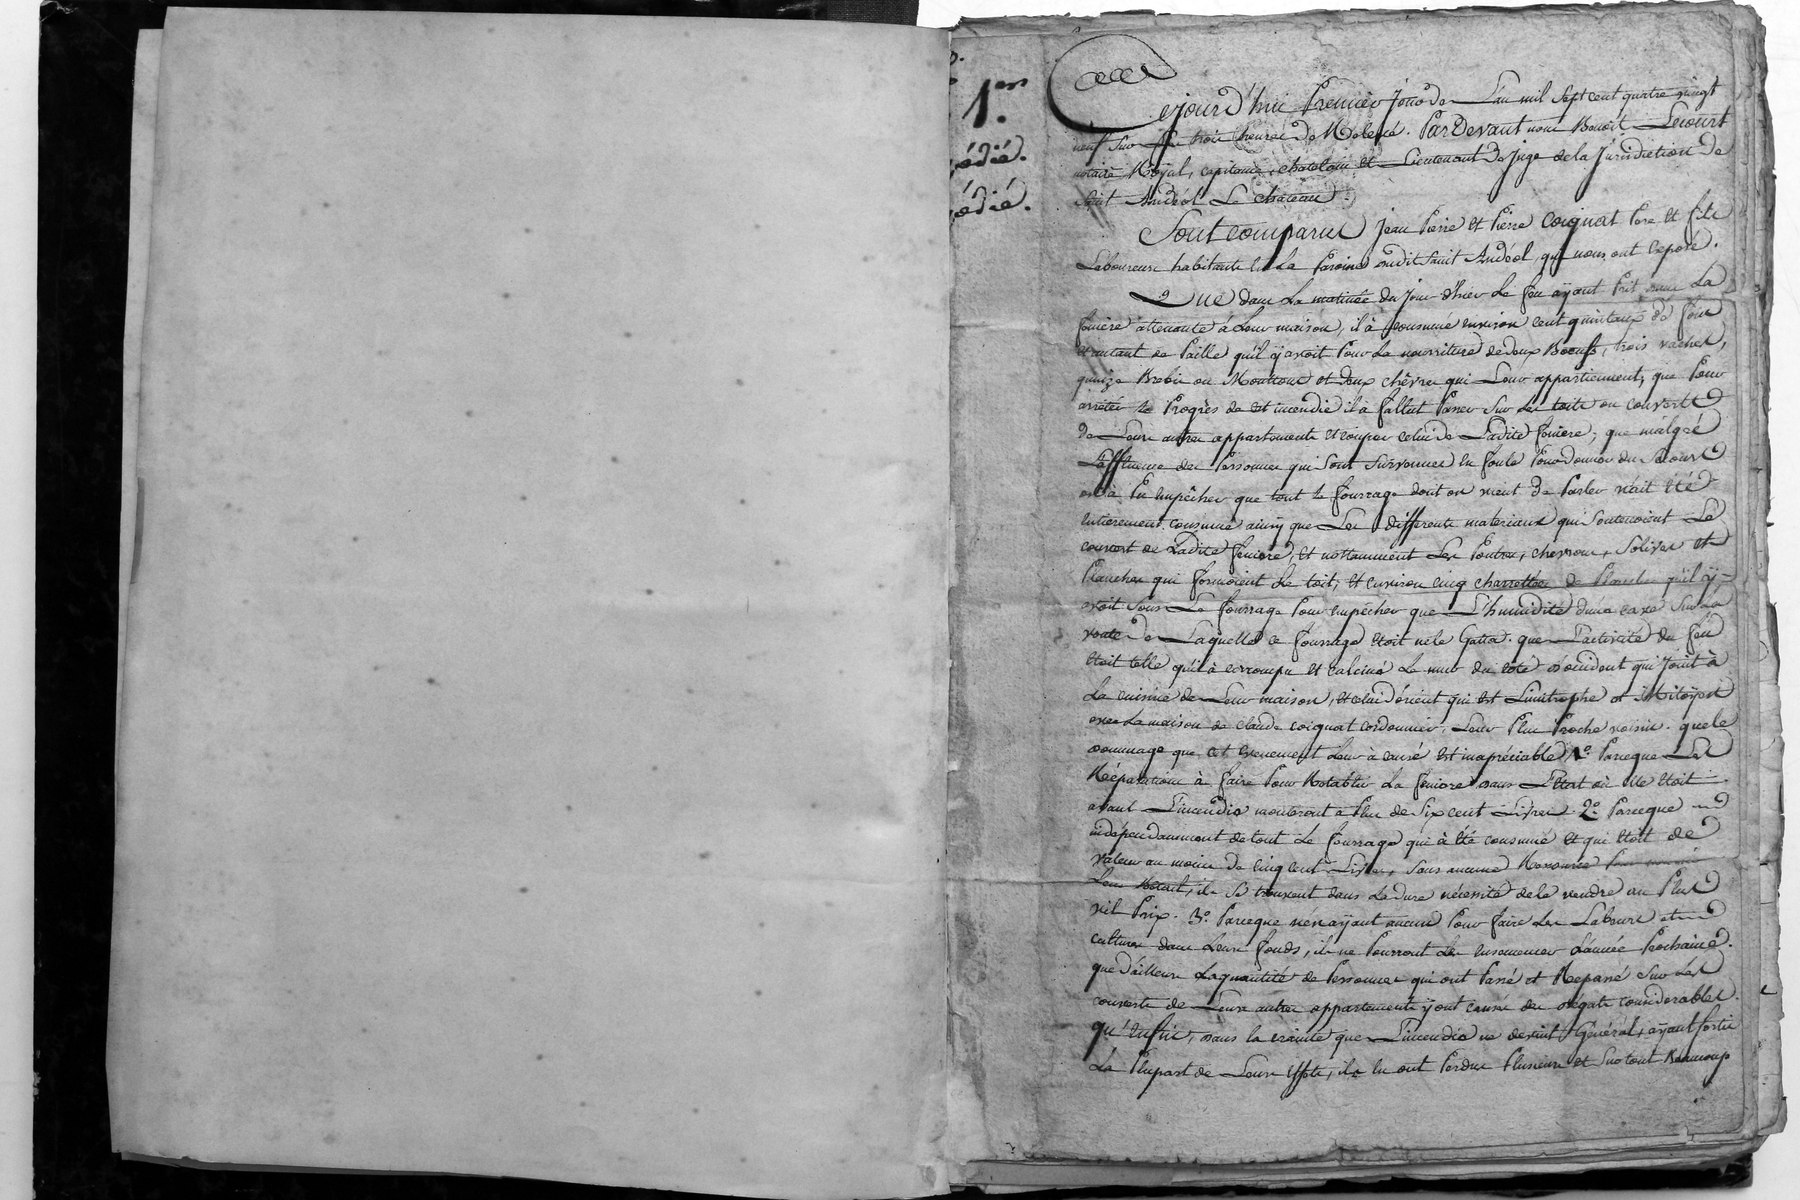 1.er
édié.
édié.
Cejourd'hui Premier Jour de L'an mil sept cent quatre vingt
neuf sur les trois heures de Relevé. Pardevant nous Benoit Lecourt
notaire Royal, capitaine, chatelain et Lieutenant de Juge de la Jurisdiction de
Saint Andéol Le chateau.
Sont comparus Jean Pierre et Pierre Coignat Pere et fils
Laboureurs habitants en La Paroisse dudit Saint Andéol, qui nous ont exposé.
Que dans La matinée du Jour d'hier Le feu ayant Prit dans La
feniere attenante à Leur maison, il à consumé environ cent quintaux de foin
et autant de Paille qu'il y avoit Pour La nourriture de deux Boeufs, trois vaches,
quinze Brebis ou Moutons et deux chêvres qui Leur appartiennent, que Pour
arrêter le Progrès de cet incendie il à fallut Passer Sur Les toits ou couverts
de Leurs autres appartements et couper celui de Ladite feniere; que malgré
L'affluence des Personnes qui Sont Survenues en foule Pour donner du Secours
on à Pu empêcher que tout le fourrage dont on vient de Parler n'ait été
entierement consumé ainsy que Les differents materiaux qui Soutenoient Le
couvert de Ladite feniere, et nottamment Les Poutres, chevrons, Solives et
Planches qui formoient Le toit, et environ cinq charrettées de Planches qu'il y
avoit Sous Le fourrage Pour empêcher que L'humidité d'une cave Sur La
voute de Laquelle ce fourrage étoit ne le Gatta. que L'activité du feu
étoit telle qu'il à corrompu et calciné Le mur du coté d'occident qui Joint à
La cuisine de Leur maison, et celui d'orient qui est Limitrophe et Mitoyen
avec La maison de Claude Coignat Cordonnier, Leur Plus Proche voisin. que le
dommage que cet evenement Leur à causé est inapréciable 1.° Parceque Les
Réparations à faire Pour Rétablir La feniere dans L'Etat où elle étoit
avant L'incendie monteront à Plus de Six cent Livres 2.° Parceque
indépendamment de tout Le fourrage qui à été consumé et qui étoit de
valeur au moins de cinq cent Livres, Sans aucune Ressource Pour nourrir
Leurs Boeufs, ils Se trouvent dans La dure nécessité de les vendre au Plus
vil Prix. 3.° Parceque n'en ayant aucun Pour faire Les Labours et
cultures dans Leurs fonds, ils ne Pourront Les ensemencer L'année Prochaine.
que d'ailleurs La quantité de Personnes qui ont Passé et Repassé Sur Les
couverts de Leurs autres appartements y ont causé des dégats considerables.
qu'enfin, dans la crainte que L'incendie ne devint Général, ayant Sortis
La Plupart de Leurs effets, ils en ont Perdus Plusieurs et Surtout Beaucoup